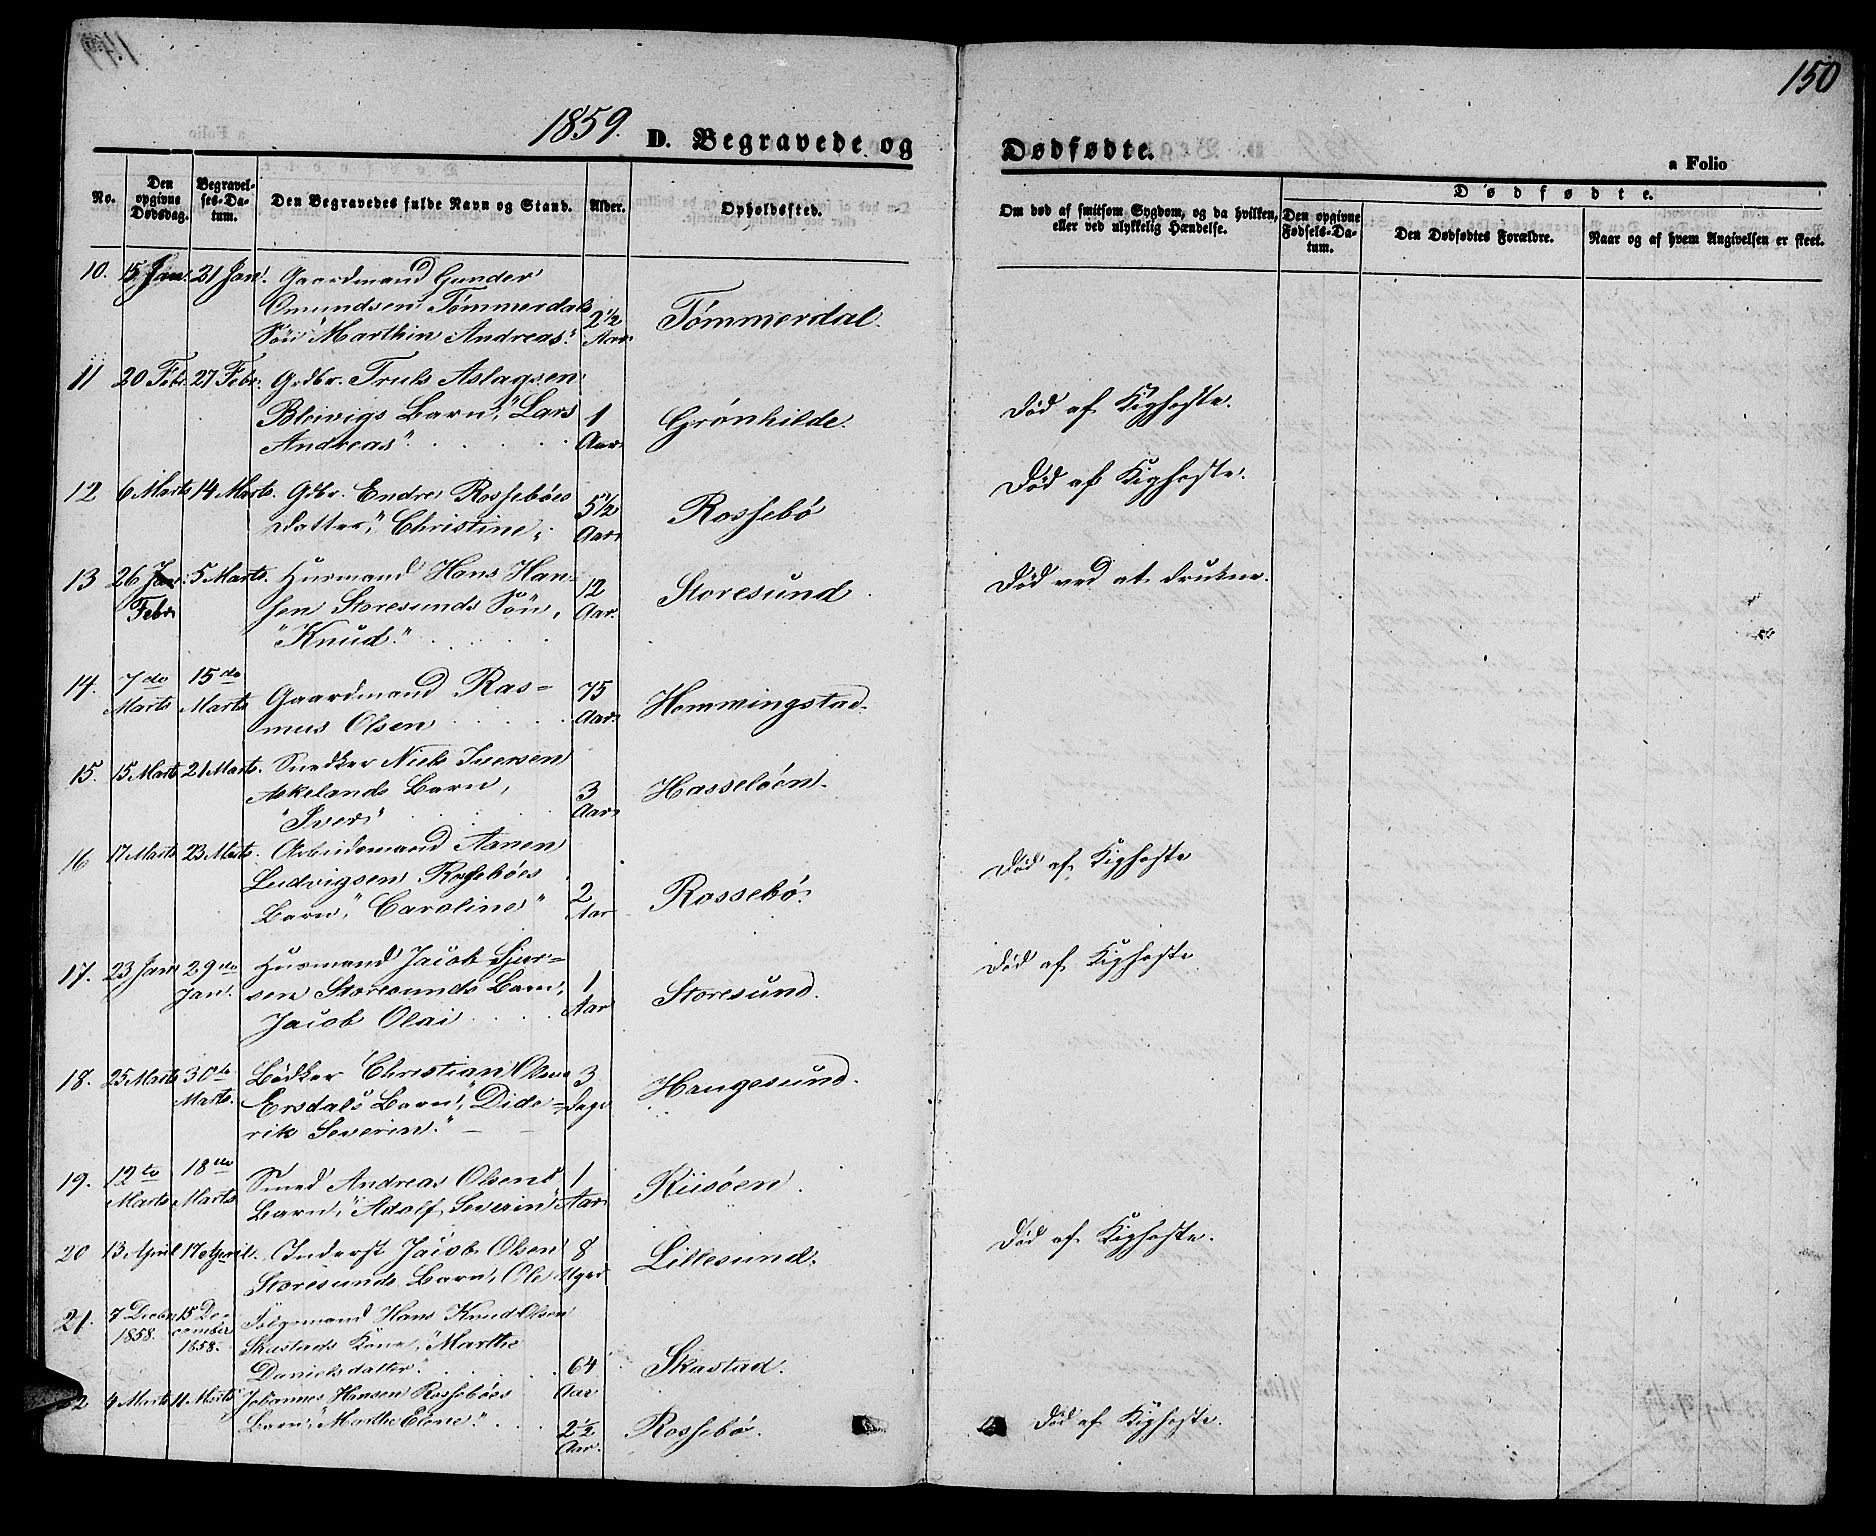 150
1859. D. Begravede og Dødfødte.
a Folio
No.
Den opgivne Dødsdag.
Begravel-ses-Da-tum.
Den Begravedes fulde Navn og Stand.
Alder.
Opholdssted.
Om død af smitsom Sygdom, og da hvilken, eller ved ulykkelig Hændelse.
Dødfødte.
Den opgivne Fødsels-Da-tum.
Den Dødfødtes Forældre.
Naar og af hvem Angivelsen er skeet.
10. 15 Jan. 21 Jan. Gaardmand Gunder
Omundsen Tømmerdals
Søn "Marthin Andreas." 2 1/2 Aar Tømmerdal.
11 20 Febr. 27 Febr. Grdbr. Truls Aslagsen
Bleivigs Barn, "Lars
Andreas" 1 Aar Grønhilde. Død af Kighoste.
12 6 Marts 14 Marts. Gdbr. Endre Rossebøes
Datter, "Christine" 5 1/2 Aar Rossebø Død af Kighoste.
13 26 Jan. Febr. 5 Marts. Husmand Hans Han-
sen Storesunds Søn,
"Knud." 12 Aar. Storesund Død ved at drukne.
14. 7de Marts 15de Marts Gaardmand Ras-
mus Olsen 75 Aar. Hemmingstad.
15. 15 Marts 21 Marts. Snedker Niels Iversen
Askelands Barn,
"Iver" 3 Aar Hasseløen.
16 17 Marts 23 Marts. Arbeidsmand Aanen
Ludvigsen Rossebøes
Barn, "Caroline" 2 Aar Rossebø. Død af Kighoste
17. 23 Jan 29de Jan. Husmand Jacob Sjur-
sen Storesunds Barn,
Jacob Olai 1 Aar Storesund. Død af Kighoste
18. 25 Marts 30te Marts. Bødker Christian Olsen
Ersdals Barn, "Dide-
rik Severin." 3 Dage Haugesund.
19. 12te Marts 18de Marts Smed Andreas Olsens
Barn, "Adolf Severin" 1 Aar Riisøen.
20 13 April 17 April. Inderst Jacob Olsen
Storesunds Barn, Ole 8 Uger Lillesund. Død af Kighoste.
21. 7 Decbr. 1858. 15 De-cember 1858. Folgemand Hans Knud Olsen
Skastads Kone, "Marthe
Danielsdatter." 64 Aar Skastad.
22 4 Marts 11 Marts Johannes Hansen Rossebøes
Barn, "Marthe Elene." 2 1/2 Aar. Rossebø. Død af Kighoste.